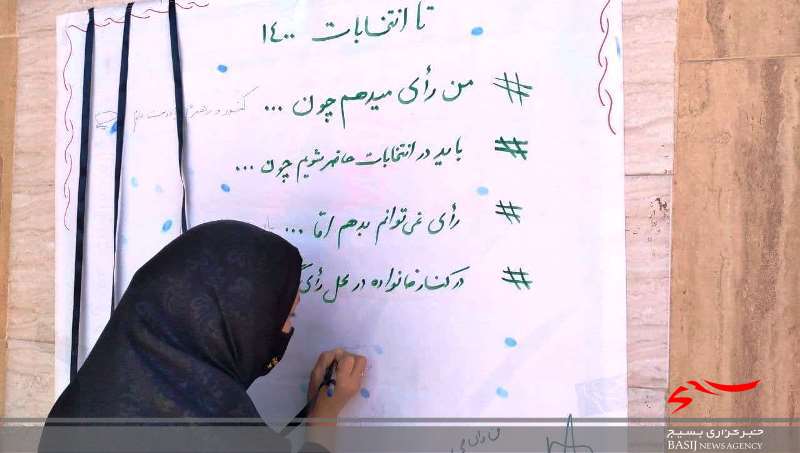 تا انتخابات ۱۴۰۰
# من رأی میدهم چون ...
# باید در انتخابات حاضر شویم چون ...
# رأی نمی‌توانم بدهم اما ...
# در کنار خانواده در محل رأی
خبرگزاری بسیج
BASIJ NEWS AGENCY